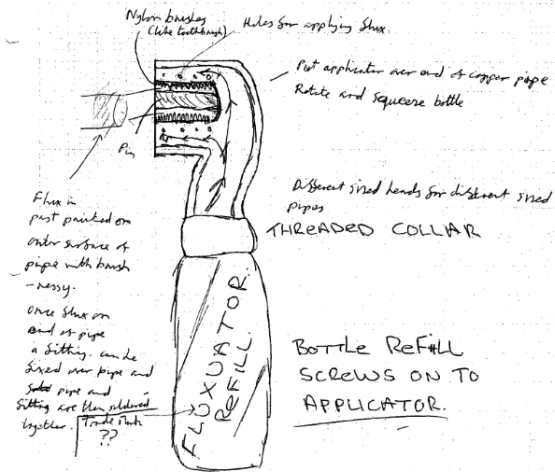 Nylon brushes
(like toothbrush)
Holes for applying flux.
Put applicator over end of copper pipe
Rotate and squeeze bottle
Pin
Different sized heads for different sized
pipes
THREADED COLLAR
Flux in
past painted on
outer surface of
pipe with brush
- messy.
Once flux on
end of pipe
a fitting. can be
fixed over pipe and
pipe and
fitting are then soldered
together.
Trade Mark
??
FLUXUATOR
REFILL.
BOTTLE REFILL
SCREWS ON TO
APPLICATOR.